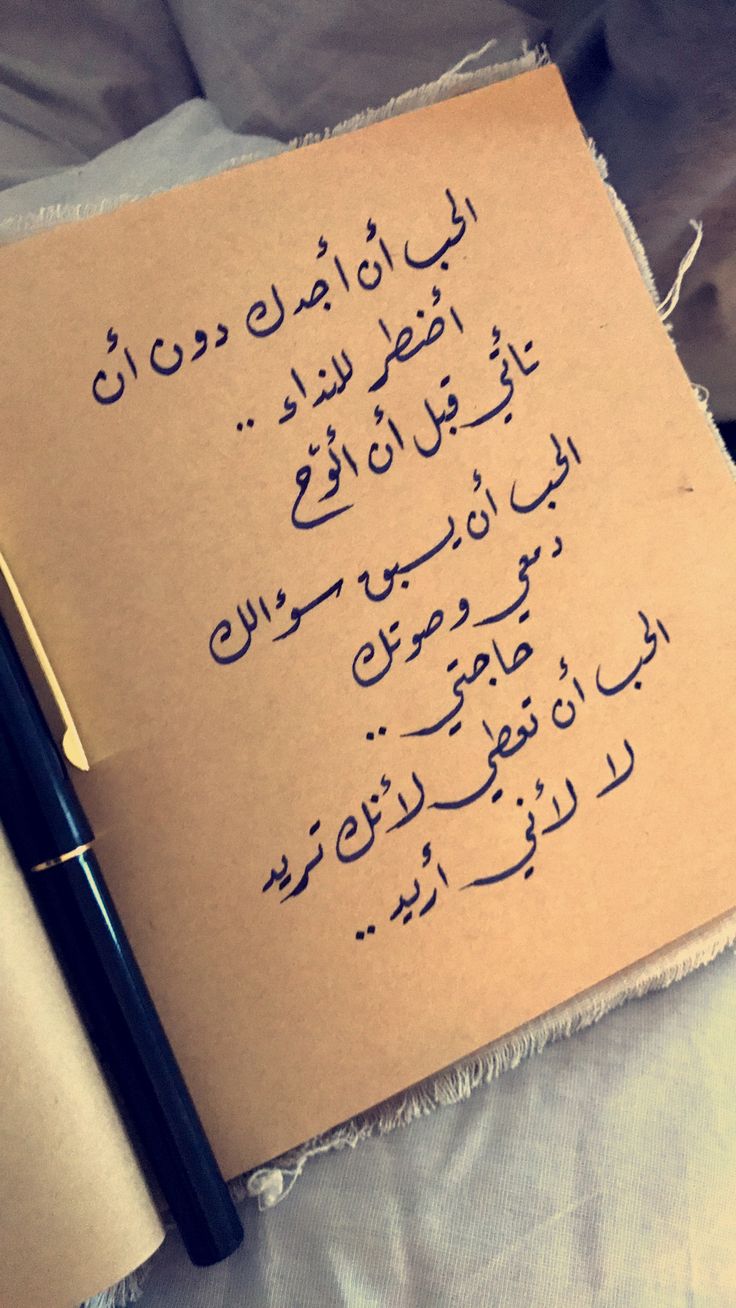 الحب أن أجدك دون أن
أضطر للنداء ..
تأتي قبل أن ألوّح
الحب أن يسبق سؤالك
دمعي وصوتك
حاجتي ..
الحب أن تعطي لأنك تريد
لا لأني أريد ..